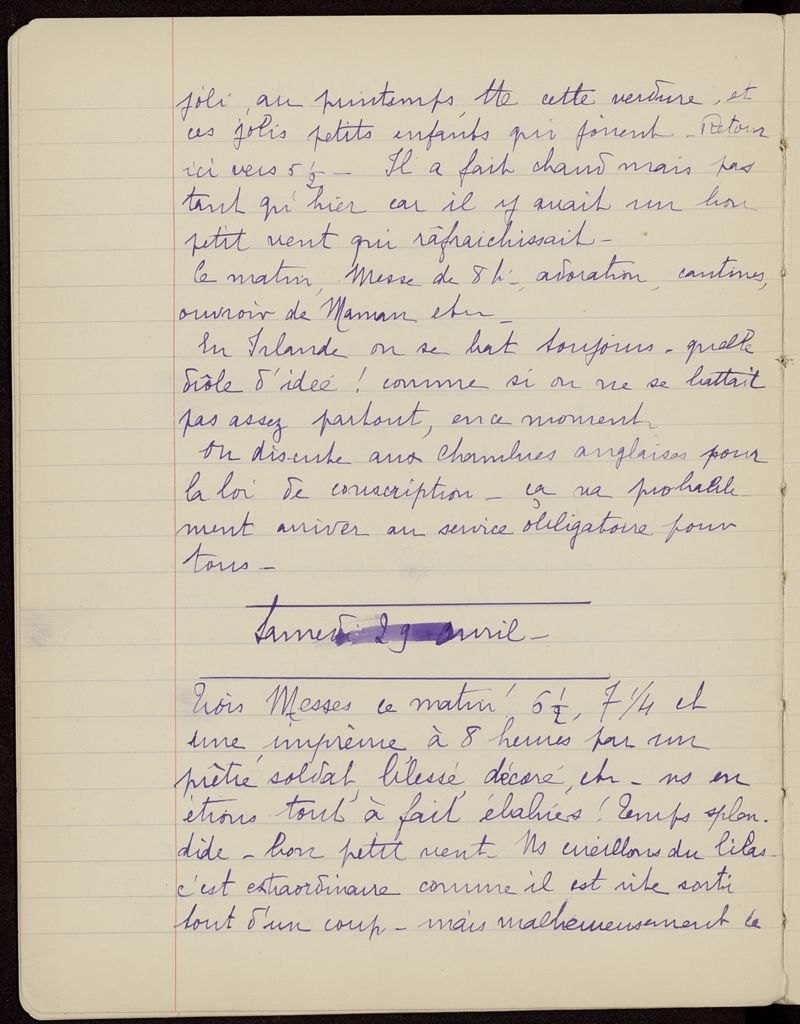 joli, au printemps, tte cette verdure, et
ces jolis petits enfants qui jouent - Retour
ici vers 5 1/2 - Il a fait chaud mais pas
tant qu'hier car il y avait un bon
petit vent qui rafraichissait -
Ce matin, Messe de 8h -, adoration, cantines,
ouvroir de Maman etc -
En Irlande on se bat toujours - quelle
drôle d'idée ! comme si on ne se battait
pas assez partout, en ce moment
On discute aux chambres anglaises pour
la loi de conscription - ça va probable-
ment arriver au service obligatoire pour
tous -
Samedi 29 avril -
Trois Messes ce matin ! 6 1/2, 7 1/4 et
une imprévue à 8 heures par un
prêtre soldat, blessé, décoré, etc - ns en
étions tout à fait ébahies ! Temps splen-
dide - bon petit vent - Ns cueillons du lilas -
c'est extraordinaire comme il est vite sorti
tout d'un coup - mais malheureusement ce